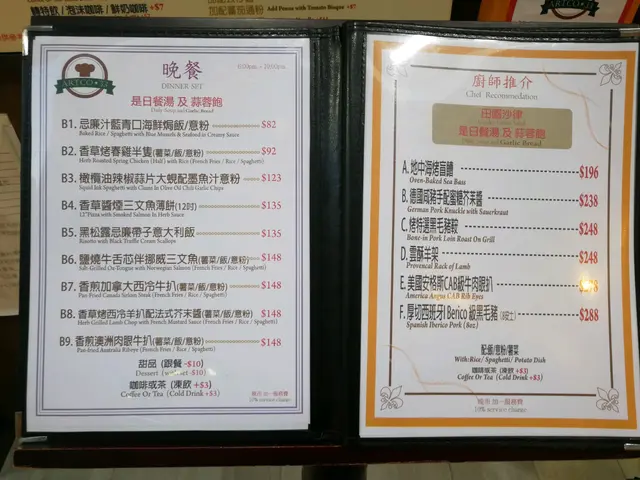 精緻飲/泡沫咖啡/鮮奶咖啡 +$7
加配蕃茄湯粉 Add Penne with Tomato Bisque +$7
ARTCO
晚餐
DINNER SET
6:00p.m. - 10:00p.m.
是日餐湯 及 蒜蓉飽
Daily Soup and Garlic Bread
B1. 忌廉汁藍青口海鮮焗飯/意粉 $82
Baked Rice / Spaghetti with Blue Mussels & Seafood in Creamy Sauce
B2. 香草烤春雞半隻(薯菜/飯/意粉) $92
Herb Roasted Spring Chicken (Half) with Rice (French Fries / Rice / Spaghetti)
B3. 橄欖油辣椒蒜片大蜆配墨魚汁意粉 $123
Squid Ink Spaghetti with Clams in Olive Oil Chili Garlic Chips
B4. 香草醬煙三文魚薄餅(12吋) $135
12" Pizza with Smoked Salmon In Herb Sauce
B5. 黑松露忌廉帶子意大利飯 $135
Risotto with Black Truffle Cream Scallops
B6. 鹽燒牛舌忩伴挪威三文魚(薯菜/飯/意粉) $148
Salt-Grilled Ox-Tongue with Norwegian Salmon (French Fries / Rice / Spaghetti)
B7. 香煎加拿大西冷牛扒(薯菜/飯/意粉) $148
Pan-Fried Canada Sirloin Steak (French Fries / Rice / Spaghetti)
B8. 香草烤西冷羊扒配法式芥末醬(薯菜/飯/意粉) $148
Herb Grilled Lamb Chop with French Mustard Sauce (French Fries / Rice / Spaghetti)
B9. 香煎澳洲肉眼牛扒(薯菜/飯/意粉) $148
Pan-fried Australia Ribeye (French Fries / Rice / Spaghetti)
甜品 (跟餐 -$10)
Dessert (with set -$10)
咖啡或茶 (凍飲 +$3)
Coffee Or Tea (Cold Drink +$3)
需另加一服務費
10% service charge
廚師推介
Chef Recommendation
田園沙律
是日餐湯 及 蒜蓉飽
Garlic Bread
A. 地中海烤盲鰽 $196
Oven-Baked Sea Bass
B. 德國咸豬手配蜜糖芥末醬 $238
German Pork Knuckle with Sauerkraut
C. 烤性選黑毛豬鞍 $248
Bone-in Pork Loin Roast On Grill
D. 雲酥羊架 $248
Provencal Rack of Lamb
E. 美國安格斯CAB級牛肉眼扒
America Angus CAB Rib Eyes
F. 厚切西班牙Iberico 級黑毛豬(8安士) $288
Spanish Iberico Pork (8oz)
配飯/意粉/薯菜
With:Rice/ Spaghetti/ Potato Dish
咖啡或茶 (凍飲 +$3)
Coffee Or Tea (Cold Drink +$3)
10% service charge